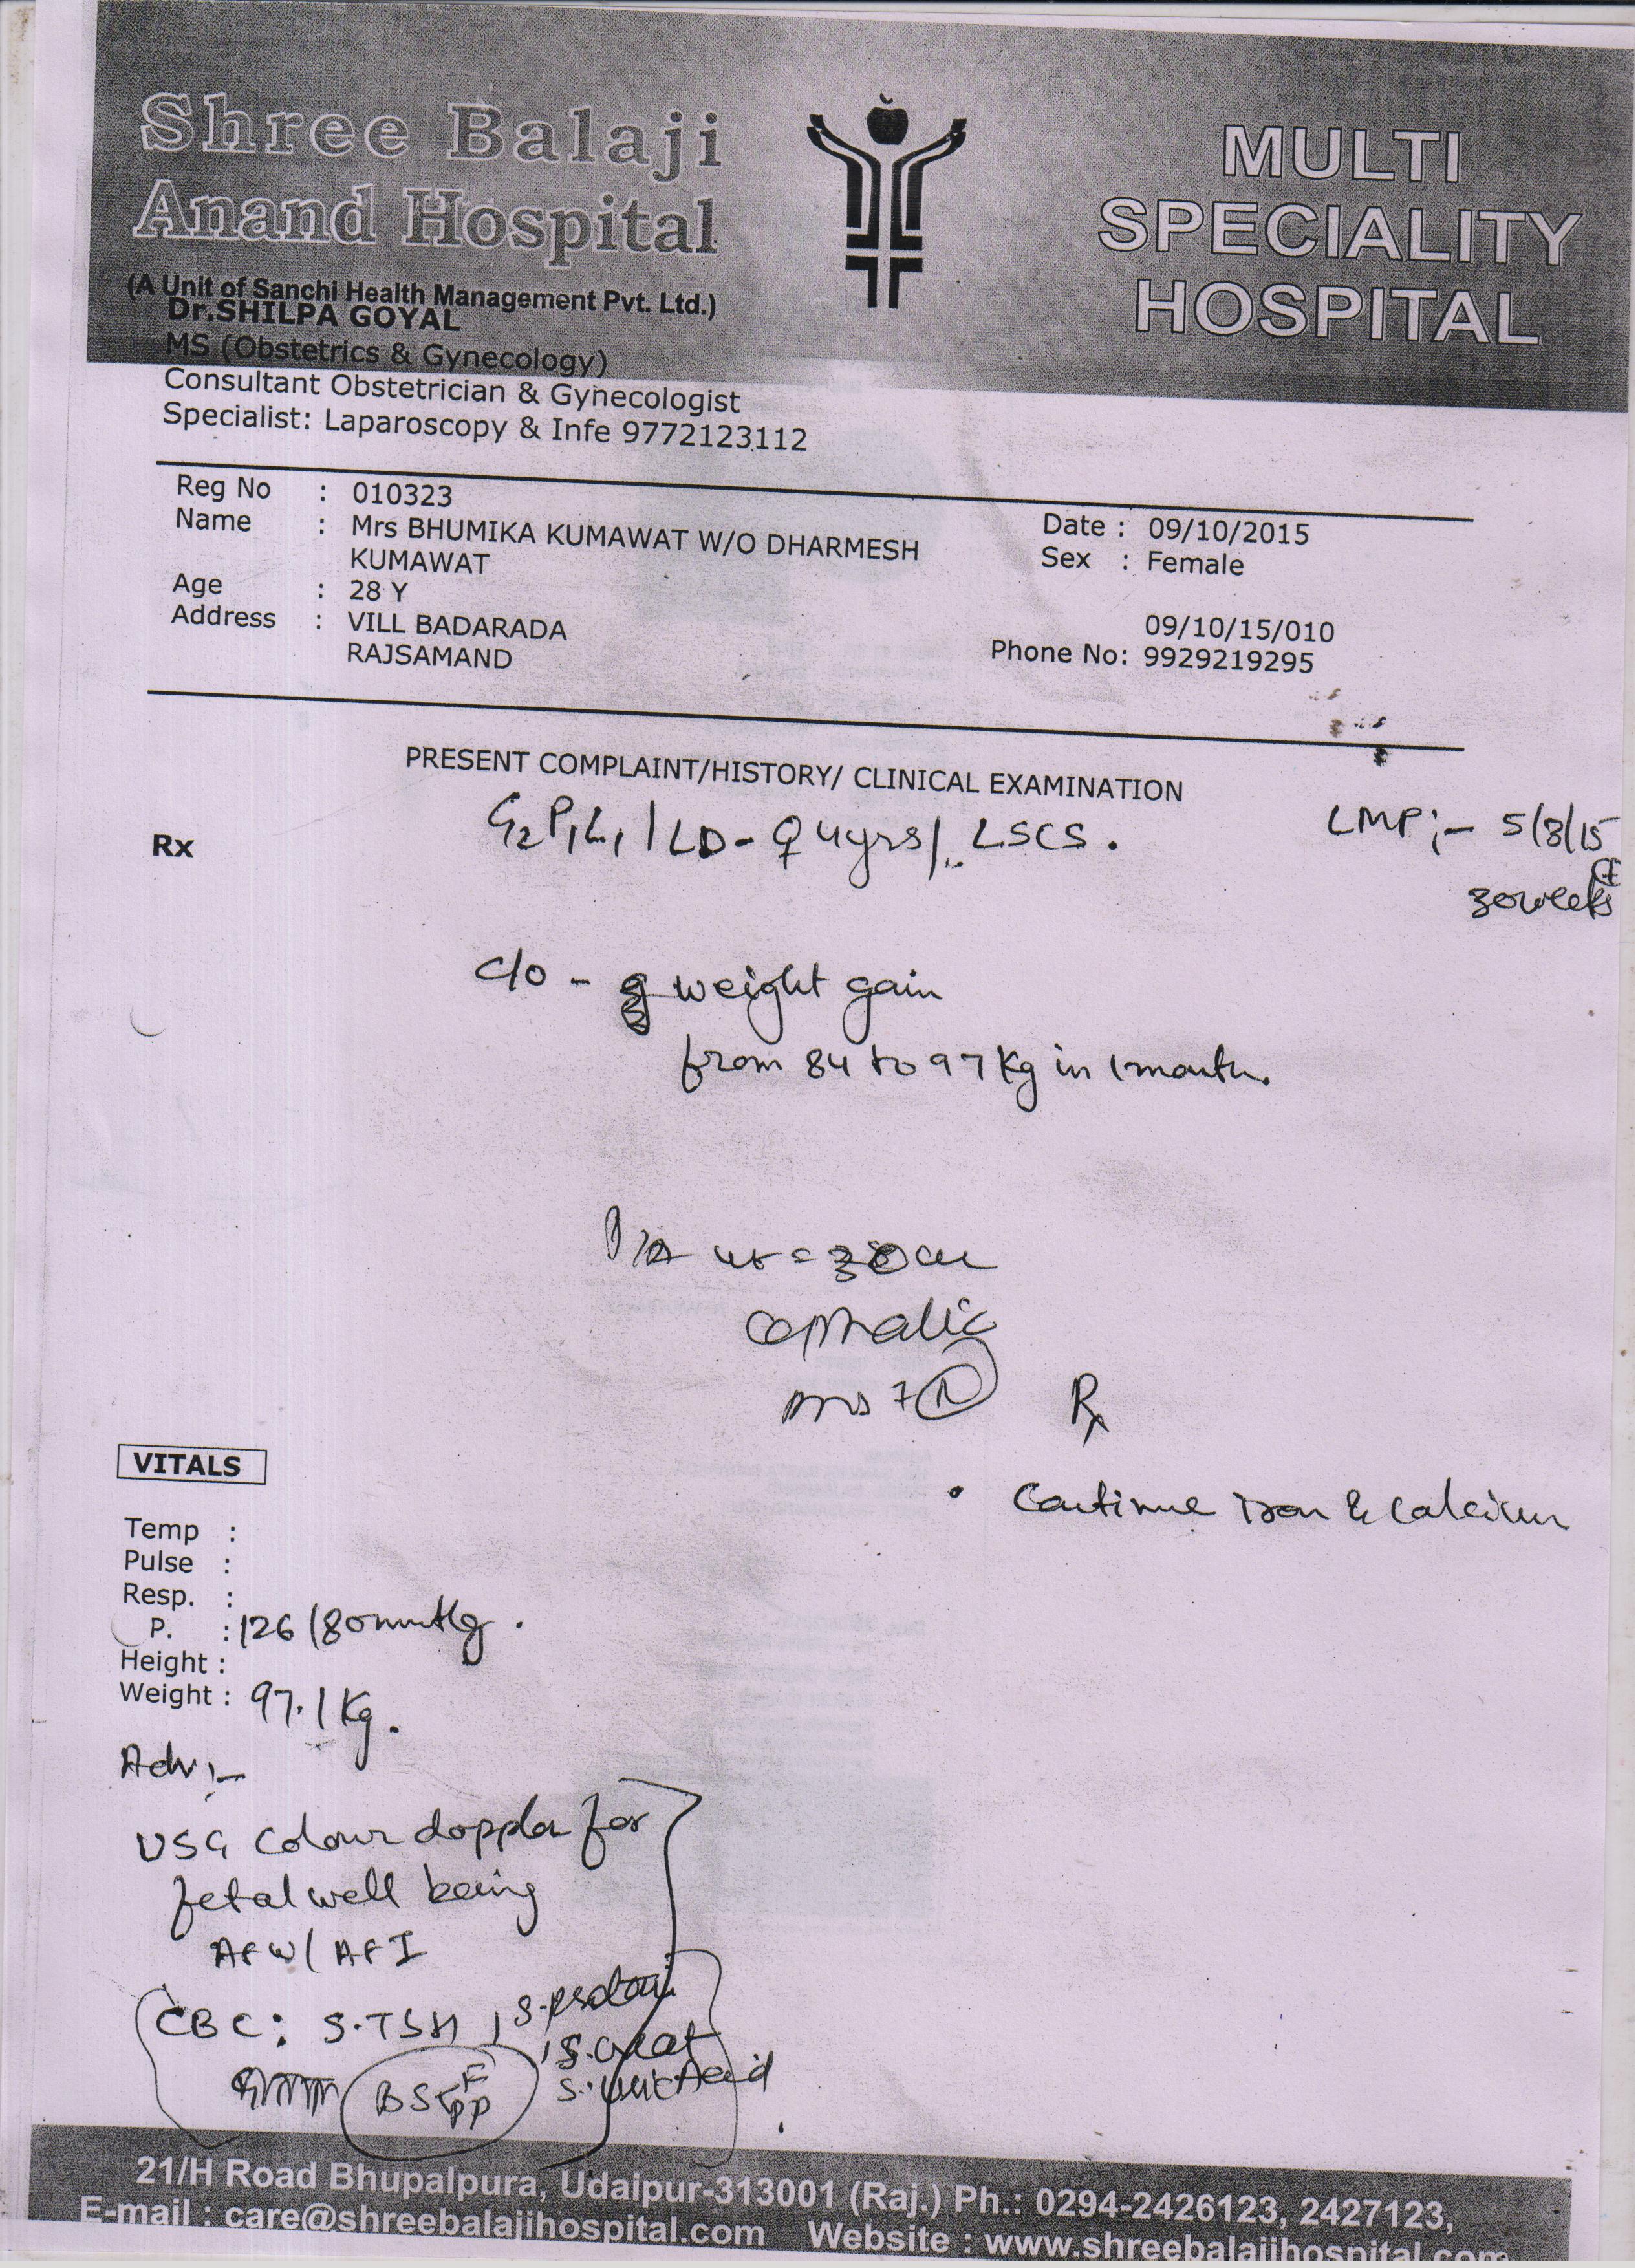 Shree Balaji
Anand Hospital
(A Unit of Sanchi Health Management Pvt. Ltd.)
MULTI
SPECIALITY
HOSPITAL
Dr.SHILPA GOYAL
MS (Obstetrics & Gynecology)
Consultant Obstetrician & Gynecologist
Specialist: Laparoscopy & Infe 9772123112
Reg No : 010323
Name : Mrs BHUMIKA KUMAWAT W/O DHARMESH
KUMAWAT
Date : 09/10/2015
Sex : Female
Age : 28 Y
Address : VILL BADARADA
RAJSAMAND
09/10/15/010
Phone No: 9929219295
PRESENT COMPLAINT/HISTORY/ CLINICAL EXAMINATION
Rx
G2P1L1 / LD - ♀ 4yrs / LSCS.
LMP :- 5/3/15
30weeks
c/o - weight gain
from 84 to 97 Kg in 1 month.
P/A
cephalic
Rx
• Continue iron & calcium
VITALS
Temp :
Pulse :
Resp. :
P. : 126/80mmHg.
Height :
Weight : 97.1 Kg.
Adv :-
USG Colour doppler for
fetal well being
AFI
CBC; S.TSH,
S.creat
BSF
PP
S.Uric Acid
21/H Road Bhupalpura, Udaipur-313001 (Raj.) Ph.: 0294-2426123, 2427123,
E-mail : care@shreebalajihospital.com Website : www.shreebalajihospital.com